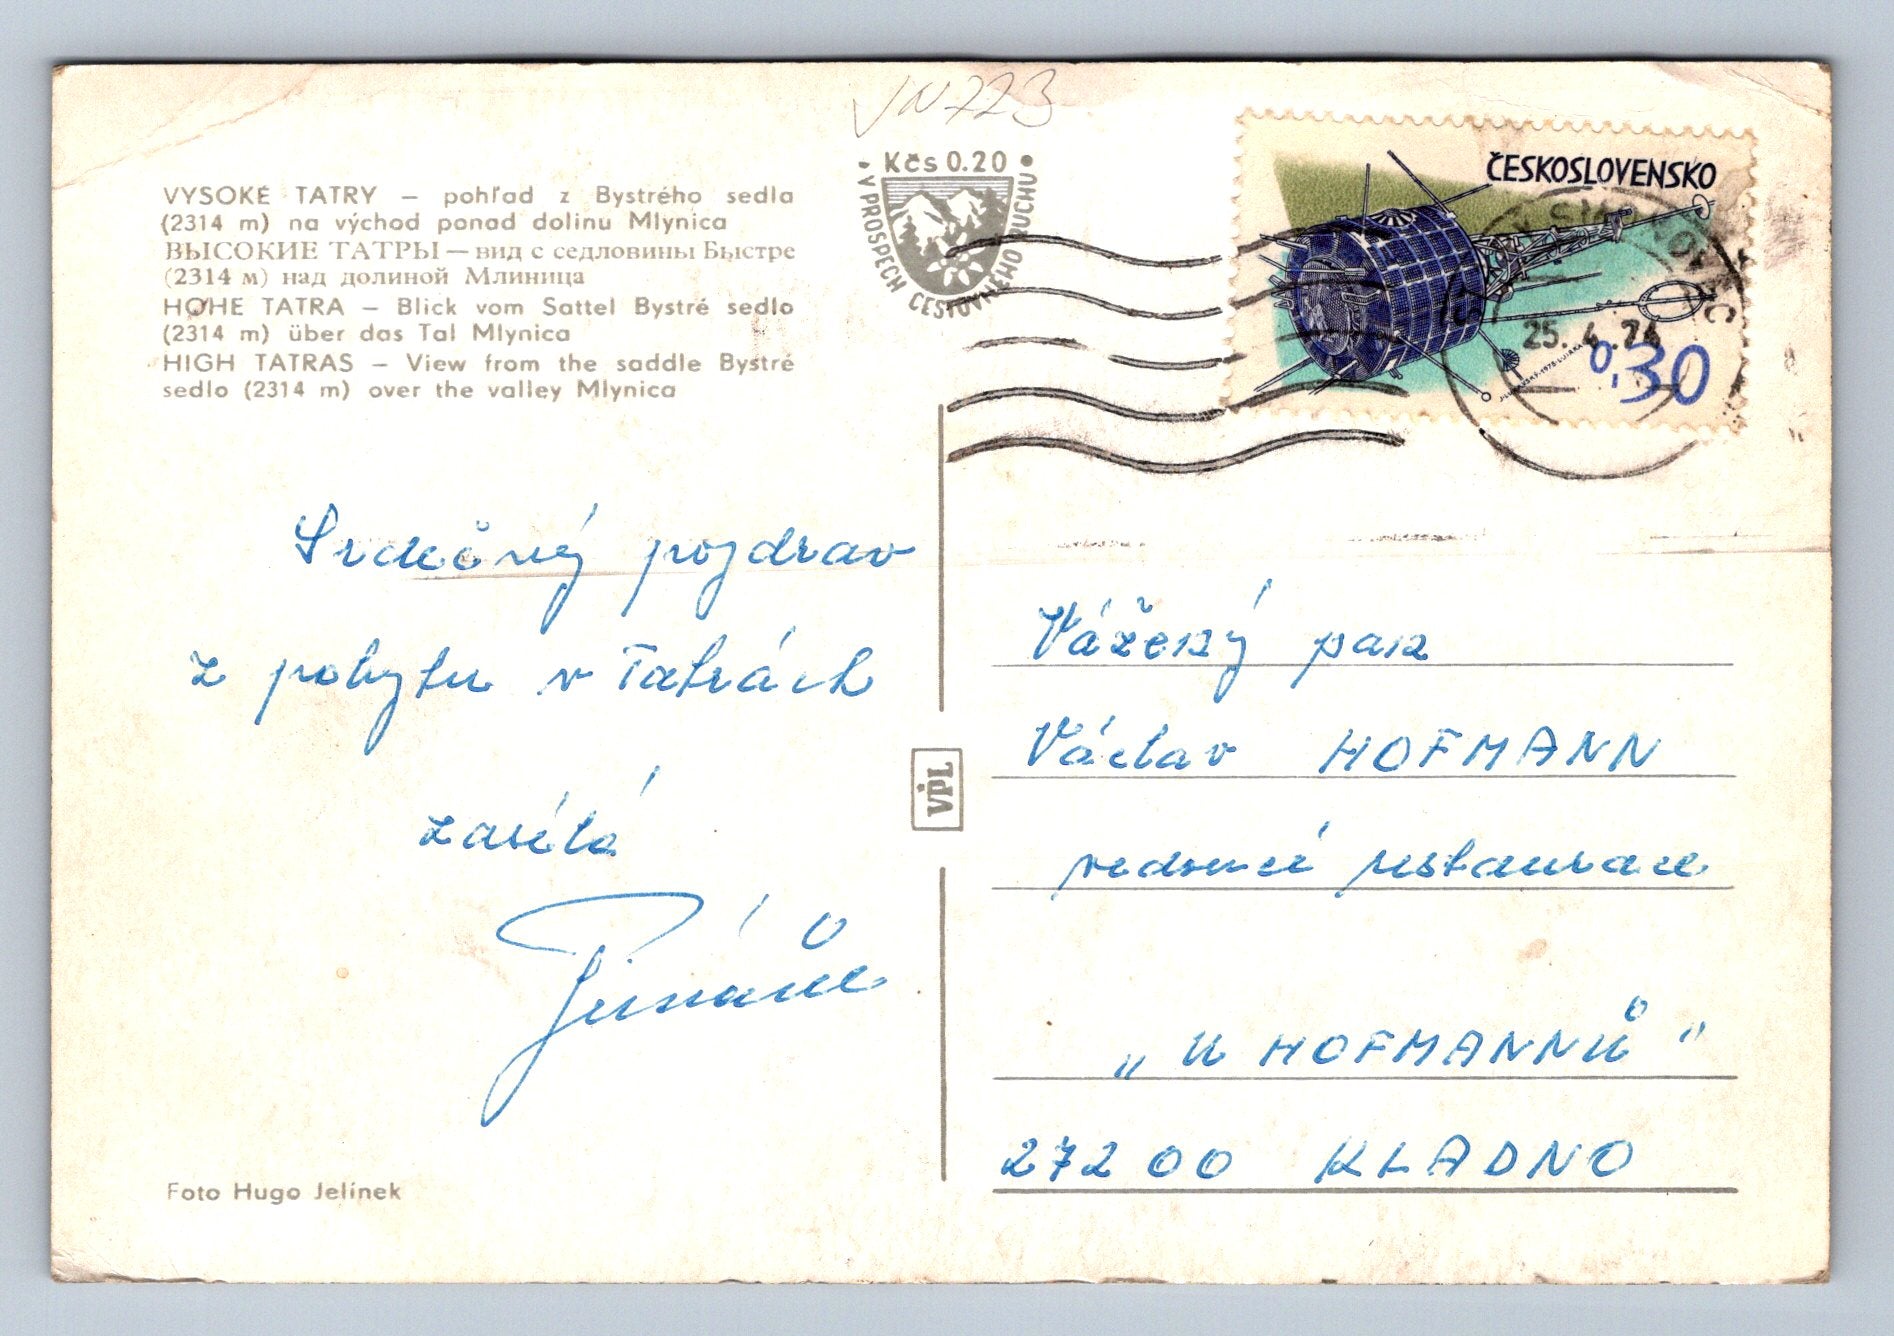 VN723
Kčs 0.20
V PROSPECH CESTOVNÉHO RUCHU
ČESKOSLOVENSKO
25. 4. 74
0,30
VYSOKÉ TATRY – pohľad z Bystrého sedla
(2314 m) na východ ponad dolinu Mlynica
ВЫСОКИЕ ТАТРЫ — вид с седловины Быстре
(2314 м) над долиной Млиница
HOHE TATRA – Blick vom Sattel Bystré sedlo
(2314 m) über das Tal Mlynica
HIGH TATRAS – View from the saddle Bystré
sedlo (2314 m) over the valley Mlynica
Srdečný pozdrav
z pobytu v Tatrách
zasílá
Foto Hugo Jelínek
VPL
Vážený pan
Václav HOFMANN
vedoucí restaurace
„U HOFMANNŮ"
272 00 KLADNO